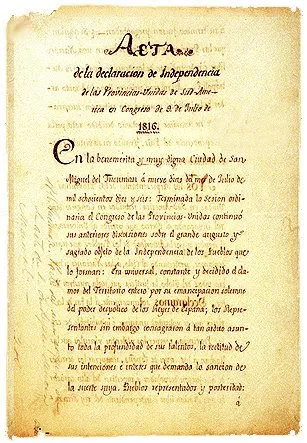 ACTA
de la declaracion de Independencia
de las Provincias-Unidas de Sud-Ame-
rica en Congreso de 9. de Julio de
1816.
En la benemerita y muy digna Ciudad de San
Miguel del Tucuman á nueve dias del mes de Julio de
mil ochocientos diez y seis: Terminada la sesion ordi-
naria el Congreso de las Provincias-Unidas continuó
sus anteriores discusiones sobre el grande augusto y
sagrado objeto de la Independencia de los Pueblos que lo
forman: Era universal, constante y decidido el cla-
mor del Territorio entero por su emancipacion solemne
del poder despotico de los Reyes de España; los Repre-
sentantes sin embargo consagraron á tan arduo asun-
to toda la profundidad de sus talentos, la rectitud de
sus intenciones é interes que demanda la sancion de
la suerte suya. Pueblos representados y posteridad:
á